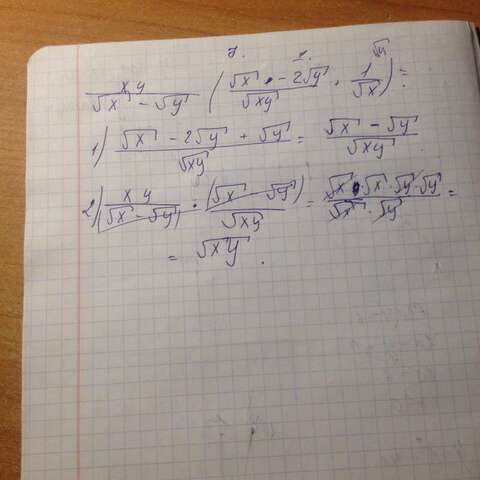 2. 1. √y
xy / (√x - √y) · ((√x - 2√y) / √xy + 1 / √x) =
1) (√x - 2√y + √y) / √xy = (√x - √y) / √xy
2) xy / (√x - √y) · (√x - √y) / √xy = (√x · √x · √y · √y) / (√x · √y) =
= √xy.